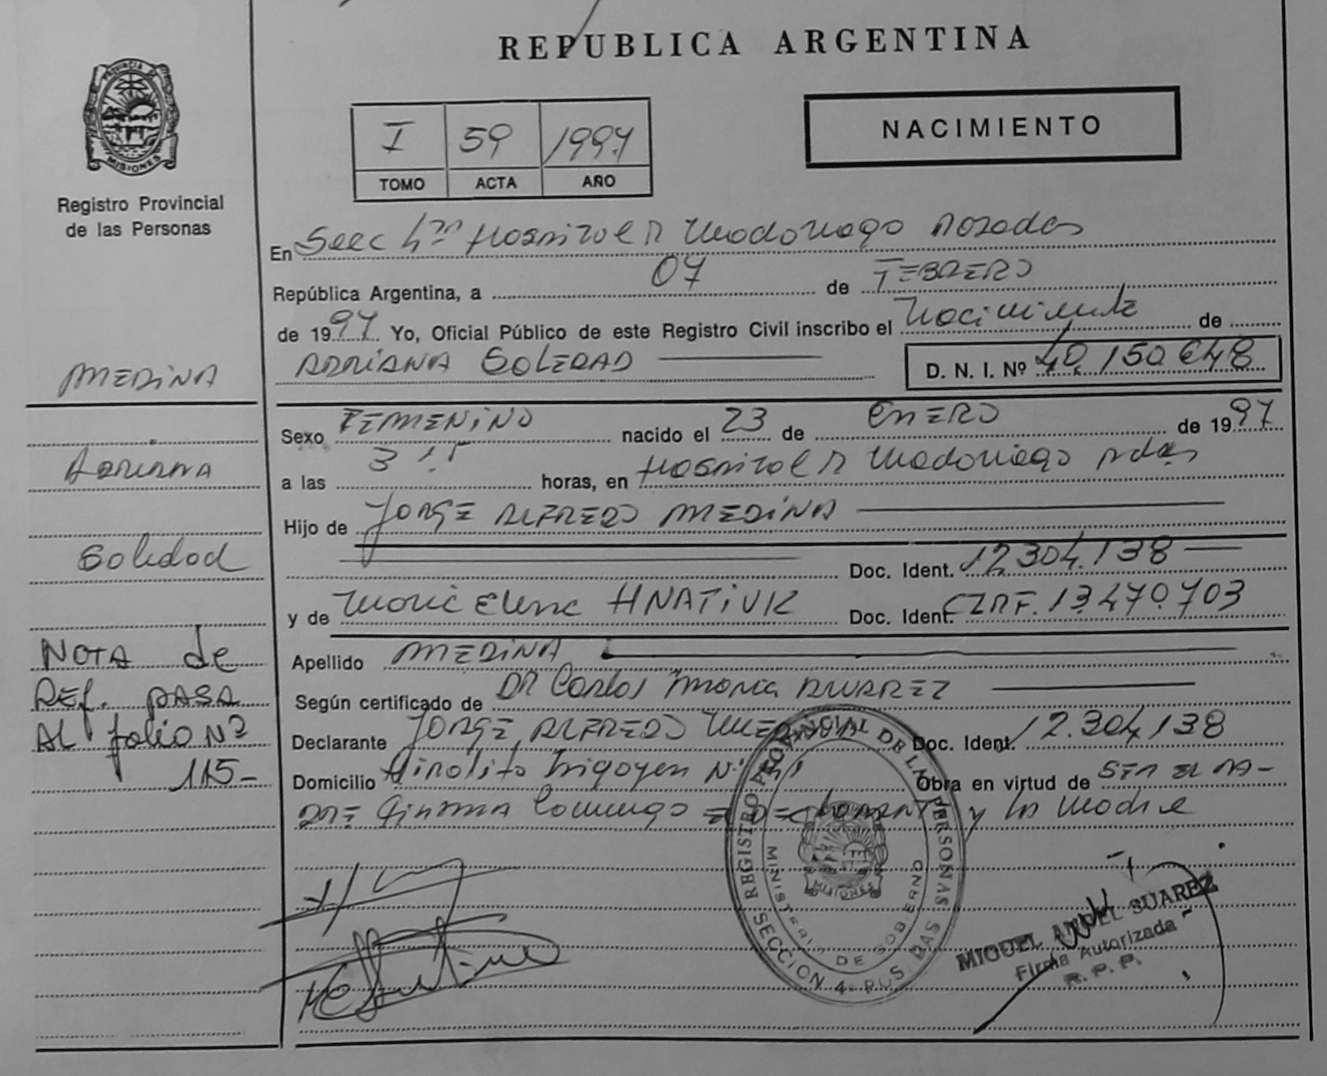 REPUBLICA ARGENTINA
PROVINCIA DE
MISIONES
Registro Provincial
de las Personas
I 59 1997
TOMO ACTA AÑO
NACIMIENTO
En Secc 4ta Hospital R Madariaga Posadas
República Argentina, a 07 de FEBRERO
de 1997 Yo, Oficial Público de este Registro Civil inscribo el Nacimiento de
ADRIANA SOLEDAD
D. N. I. Nº 40.150.648
MEDINA
Adriana
Soledad
Sexo FEMENINO nacido el 23 de ENERO de 1997
a las 3 15 horas, en Hospital R Madariaga Pdas
Hijo de JORGE ALFREDO MEDINA
Doc. Ident. 12.304.138
y de Maria Elena HNATIUK Doc. Ident. 13.470.703
Apellido MEDINA
Según certificado de DR Carlos Maria ALVAREZ
Declarante JORGE ALFREDO Doc. Ident. 12.304.138
Domicilio Hipolito Irigoyen Nº Obra en virtud de SER EL PA-
DRE Firma Conmigo y la Madre
NOTA de
REf. PASA
AL folio Nº
115-
REGISTRO PROVINCIAL DE LAS PERSONAS
MINISTERIO DE GOBIERNO
MISIONES
SECCION 4ª POSADAS
MIGUEL ANGEL SUAREZ
Firma Autorizada
R. P. P.